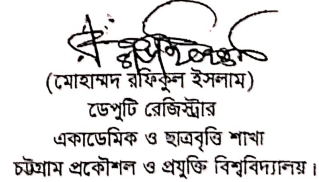 (মোহাম্মদ রফিকুল ইসলাম)
ডেপুটি রেজিস্ট্রার
একাডেমিক ও ছাত্রবৃত্তি শাখা
চট্টগ্রাম প্রকৌশল ও প্রযুক্তি বিশ্ববিদ্যালয়।